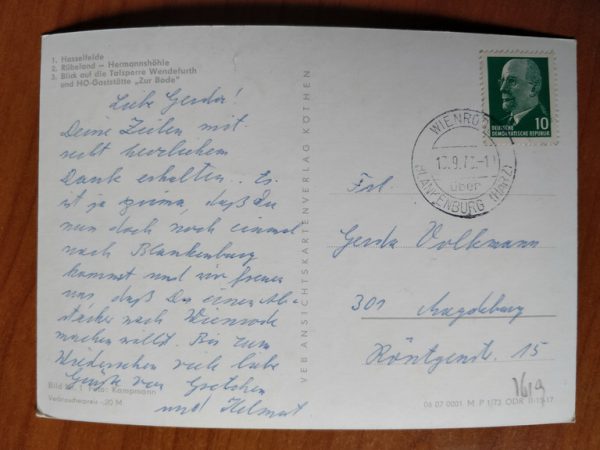 1. Hasselfelde
2. Rübeland – Hermannshöhle
3. Blick auf die Talsperre Wendefurth
und HO-Gaststätte „Zur Bode"
Liebe Gerda!
Deine Zeilen mit
recht herzlichem
Dank erhalten. Es
ist ja prima, daß Du
nun doch noch einmal
nach Blankenburg
kommst und wir freuen
uns, daß Du einen Ab-
stecher nach Wienrode
machen willst. Bis zum
Wiedersehen viele liebe
Grüße von Gretchen
und Helmut
Foto: Kampmann
Verbraucherpreis -,20 M
VEB ANSICHTSKARTENVERLAG KÖTHEN
10
DEUTSCHE
DEMOKRATISCHE REPUBLIK
über
BLANKENBURG (HARZ)
Frl.
Gerda Volkmann
301 Magdeburg
Röntgenstr. 15
1619
06 07 0001 M P 1/73 DDR